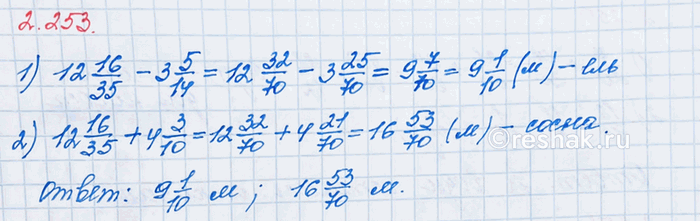 2.253.
1) 12 16/35 − 3 5/14 = 12 32/70 − 3 25/70 = 9 7/70 = 9 1/10 (м) − ель
2) 12 16/35 + 4 3/10 = 12 32/70 + 4 21/70 = 16 53/70 (м) − сосна.
Ответ: 9 1/10 м ; 16 53/70 м.
©reshak.ru